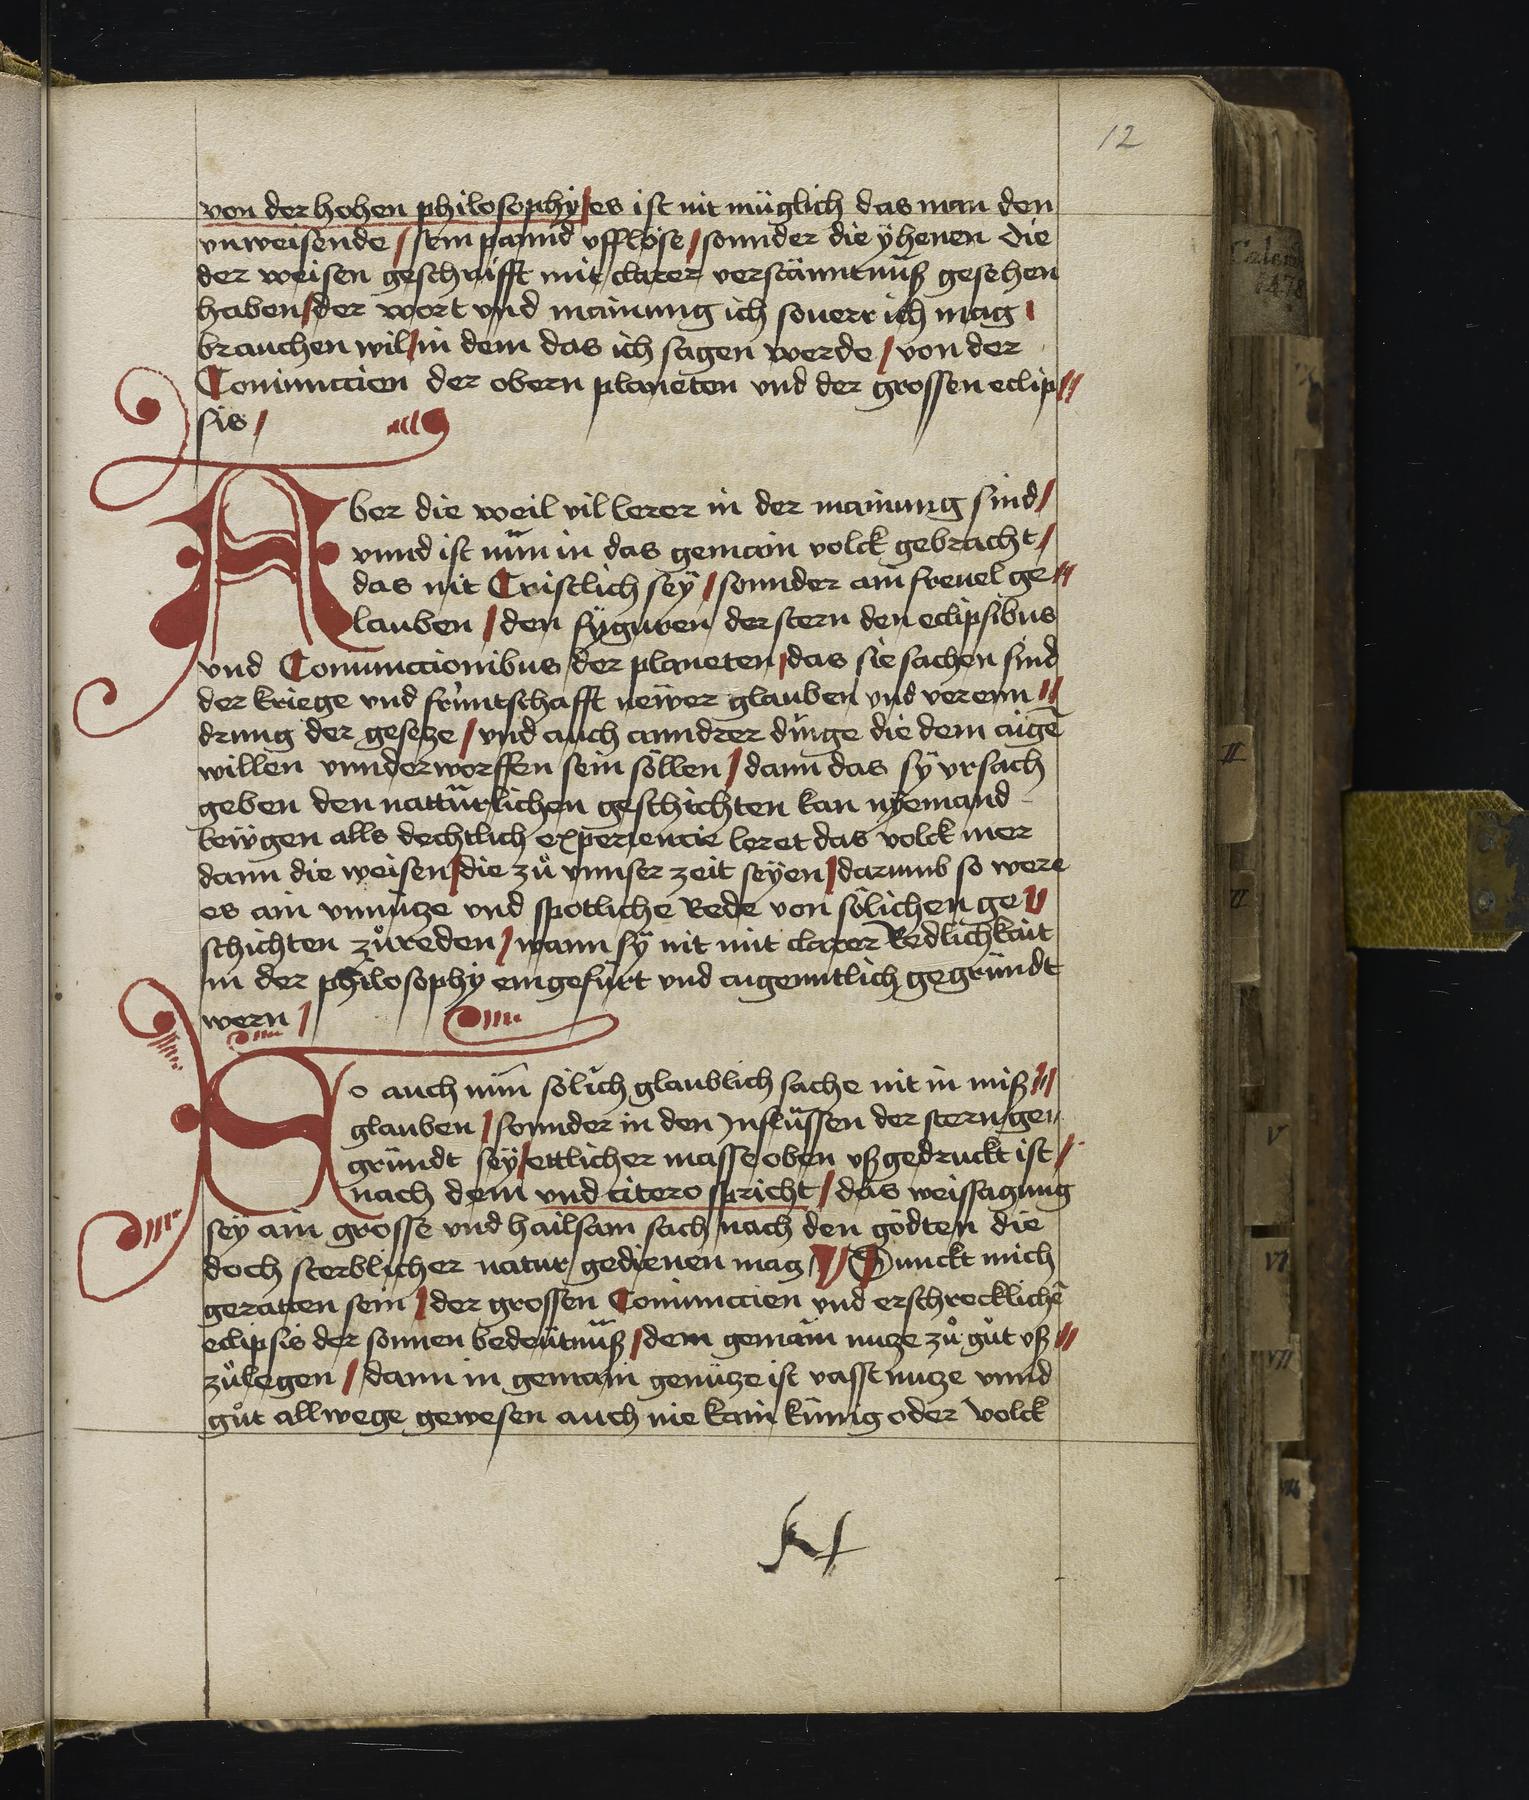 12
von der hohen philosophy / es ist nit müglich das man den
vnweisende / sein pannd vfflöse / sonnder die yhenen die
der weisen geschrifft mit clarer verstänntnüß gesehen
haben / der wort vnd mainung ich souerr ich mag /
brauchen wil / in dem das ich sagen werde / von der
Coniunccien der obern planeten vnd der grossen eclip //
sis /
Aber die weil vil lerer in der mainung sind /
vnnd ist nün in das gemain volck gebracht /
das nit Cristlich seÿ / sonnder ain freuel ge //
lauben / den fÿguren der stern den eclipsibus
vnd Coniunccionibus der planeten / das sie sachen sind
der kriege vnd früntschafft neẅer glauben vnd verenn //
drung der geseze / vnd auch anndrer dinge die dem aigē
willen vnnderworffen sein söllen / dann das sÿ vrsach
geben den nattürlichen geschichten kan nÿemand
alls experiencie leret das volck mer
dann die weisen / die zů vnnser zeit seÿen / darumb so were
es ain vnnütze vnd spotliche Rede von sölichen ge //
schichten zůreden / wann sÿ nit mit clarer Redlichkait
in der philosophy eingefürt vnd aigenntlich gegründt
wern /
So auch nün sölich glaublich sache nit in miß //
glauben / sonnder in den Jnflüssen der stern ge //
gründt seÿ / ettlicher masse oben vßgedruckt ist /
nach dem vnd citero spricht / das weissagung
seÿ ain grosse vnd hailsam sach nach den gödten die
doch sterblicher natur gedienen mag // Dunckt mich
geratten sein / der grossen Coniunccien vnd erschrecklichē
eclipsis der sonnen bedeütnüß / dem gemain nuze zů gůt vß //
zůlegen / dann in gemain genüze ist vasst nuze vnnd
gůt allwege gewesen auch nie kain künig oder volck
Calend
1478
II
V
VI
VII